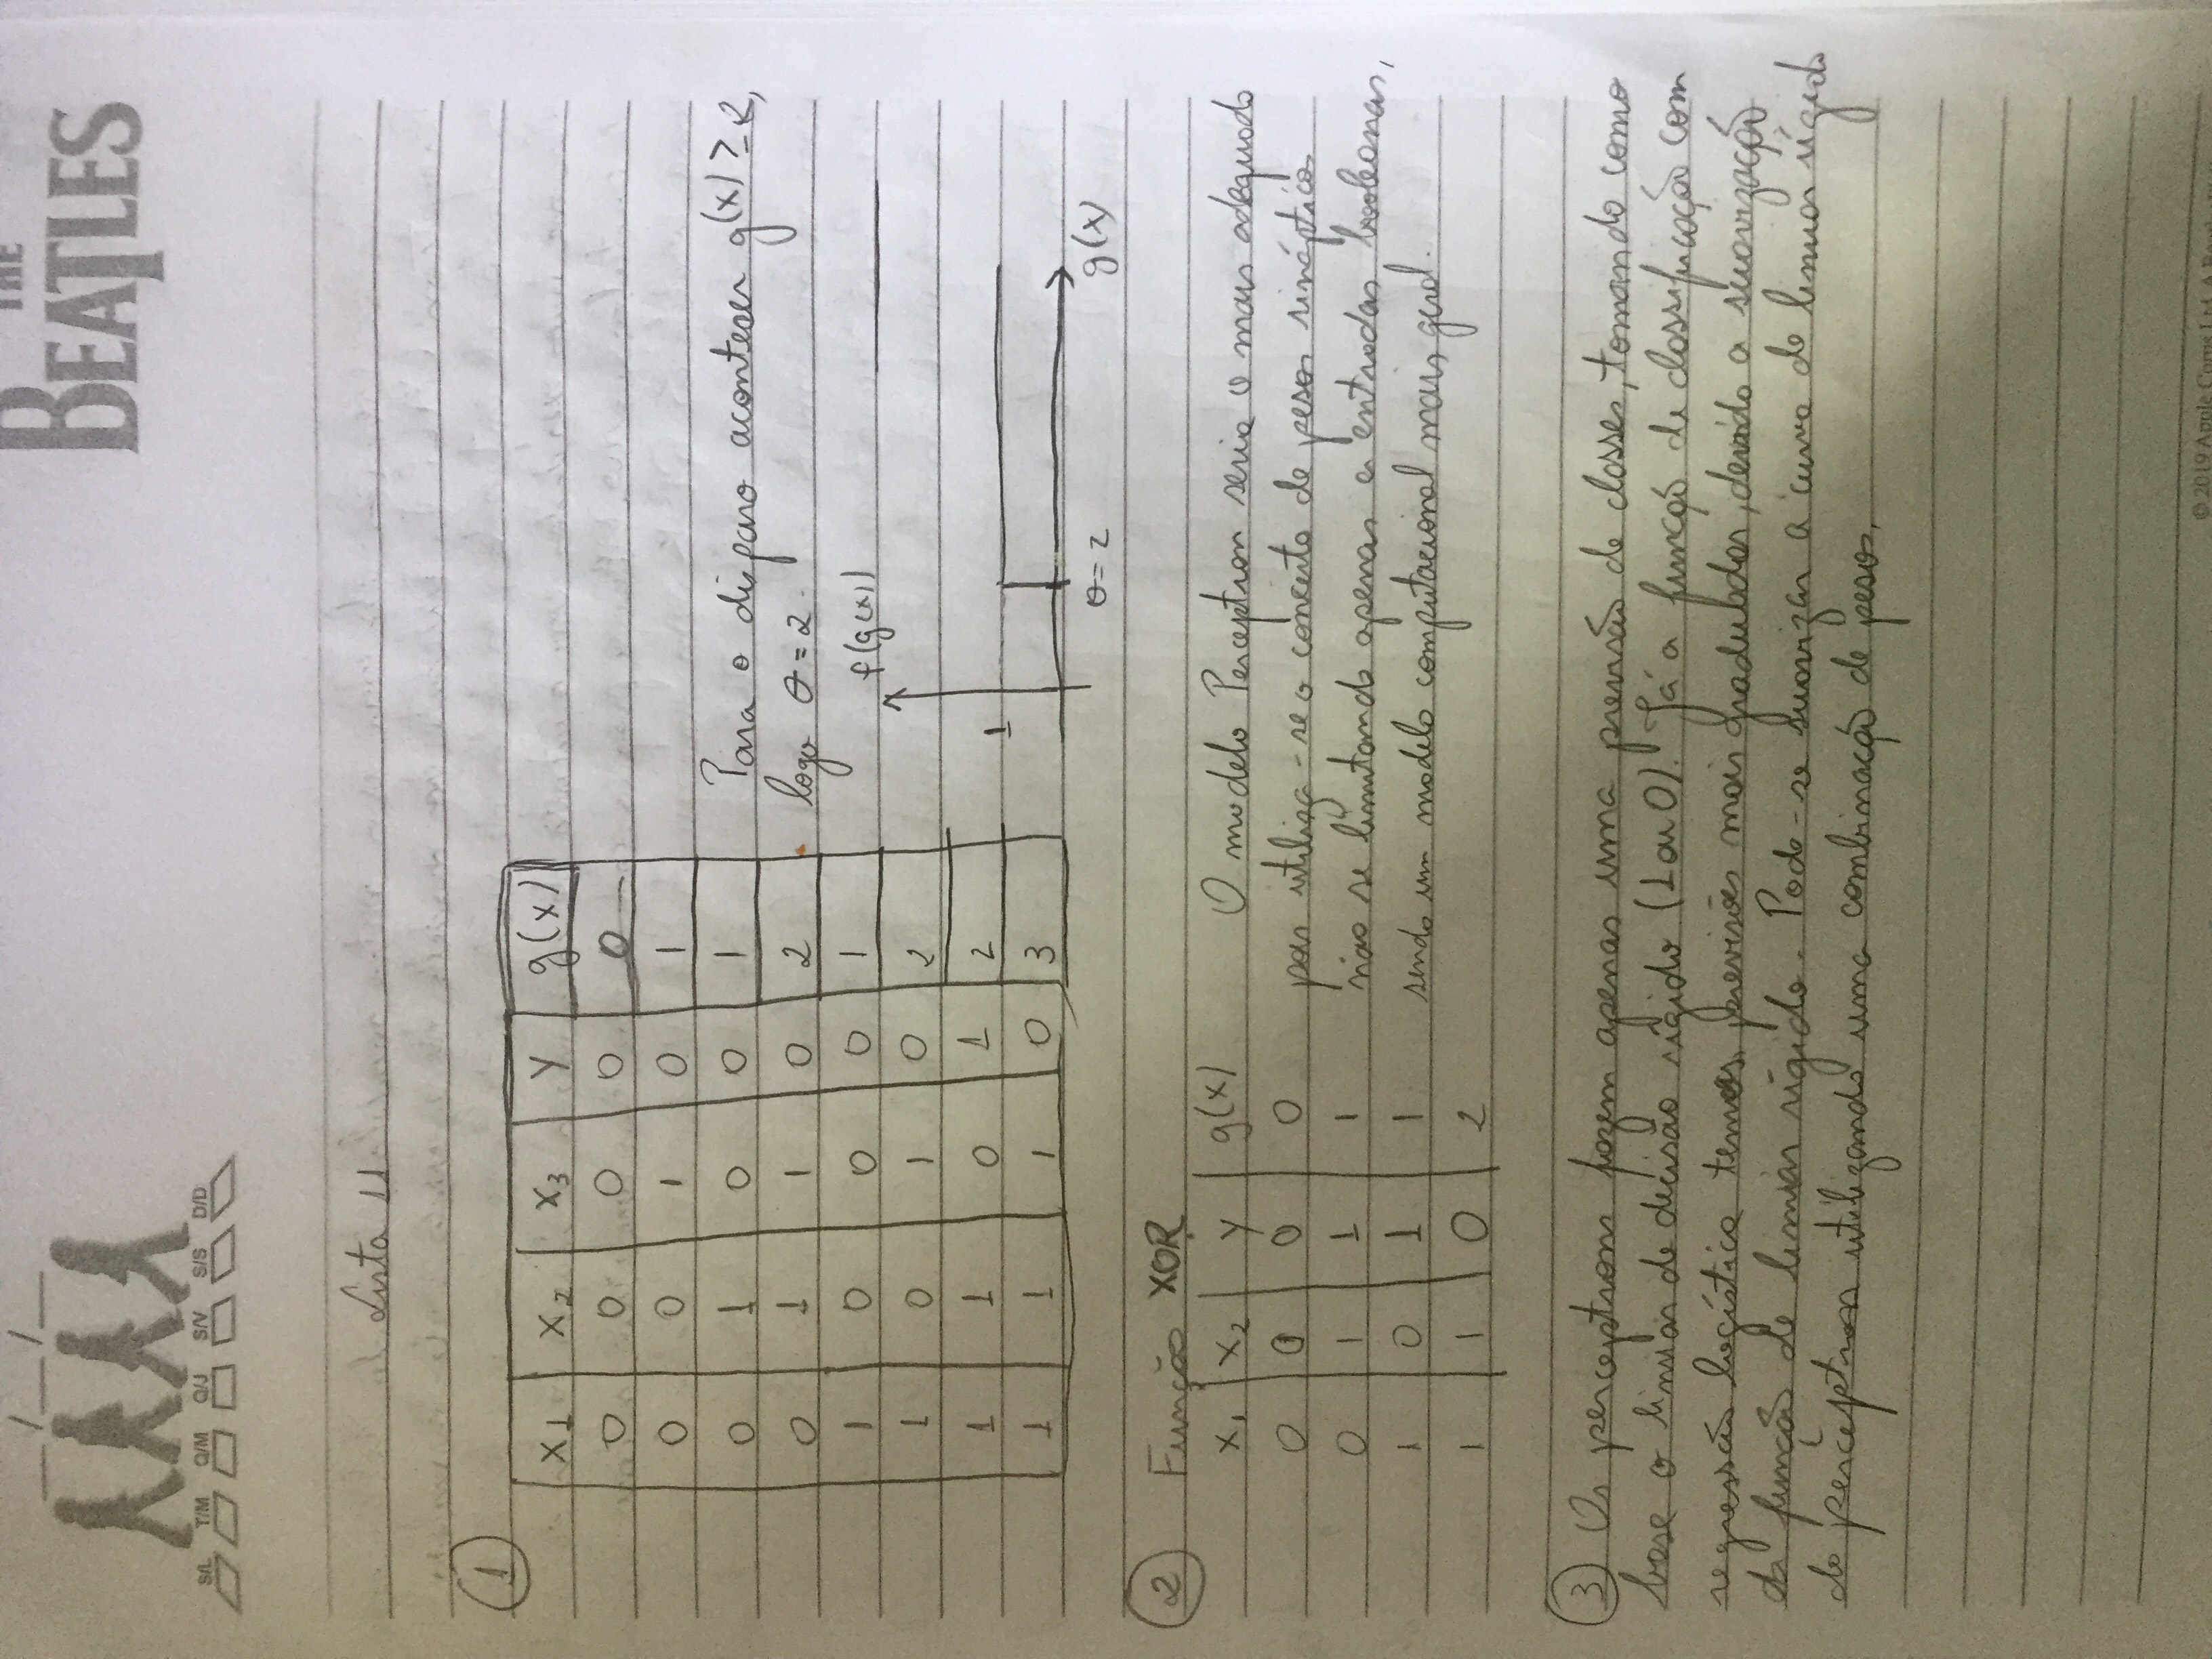 THE
BEATLES
S/L T/M Q/M Q/J S/V S/S D/D
Lista 11
1
X1 X2 X3 Y g(x)
0 0 0 0 0
0 0 1 0 1
0 1 0 0 1
0 1 1 0 2
1 0 0 0 1
1 0 1 0 2
1 1 0 1 2
1 1 1 0 3
Para o disparo acontecer g(x) ≥ 2,
logo θ = 2.
f(g(x))
1
θ = 2
g(x)
2 Função XOR
X1 X2 Y g(x)
0 0 0 0
0 1 1 1
1 0 1 1
1 1 0 2
O modelo Perceptron seria o mais adequado
pois utiliza-se o conceito de pesos sinápticos
não se limitando apenas a entradas booleanas,
sendo um modelo computacional mais geral.
3 Os perceptrons fazem apenas uma previsão de classes, tomando como
base o limiar de decisão rígido (1 ou 0). Já a função de classificação com
regressão logística temos previsões mais graduadas, devido a suavização
da função de limiar rígido. Pode-se suavizar a curva do limiar rígido
do perceptron utilizando uma combinação de pesos.
© 2019 Apple Corps Ltd. A